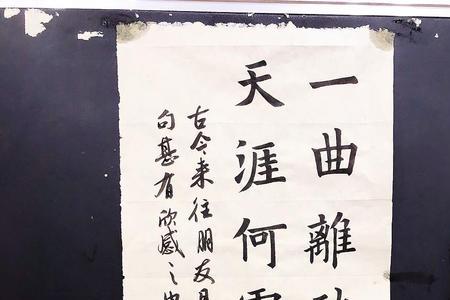 一曲離
天涯何
古今来往朋友
句甚有欣感之